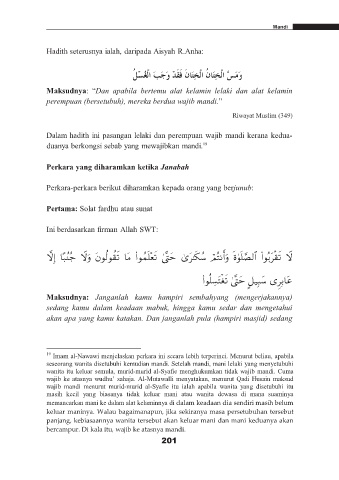 Mandi
Hadith seterusnya ialah, daripada Aisyah R.Anha:
وَمَسَّ الْخِتَانُ الْخِتَانَ فَقَدْ وَجَبَ الْغُسْلُ
Maksudnya: “Dan apabila bertemu alat kelamin lelaki dan alat kelamin
perempuan (bersetubuh), mereka berdua wajib mandi.”
Riwayat Muslim (349)
Dalam hadith ini pasangan lelaki dan perempuan wajib mandi kerana kedua-
duanya berkongsi sebab yang mewajibkan mandi.19
Perkara yang diharamkan ketika Janabah
Perkara-perkara berikut diharamkan kepada orang yang berjunub:
Pertama: Solat fardhu atau sunat
Ini berdasarkan firman Allah SWT:
لَا تَقْرَبُوا۟ ٱلصَّلَوٰةَ وَأَنتُمْ سُكَـٰرَىٰ حَتَّىٰ تَعْلَمُوا۟ مَا تَقُولُونَ وَلَا جُنُبًا إِلَّا
عَابِرِى سَبِيلٍ حَتَّىٰ تَغْتَسِلُوا۟
Maksudnya: Janganlah kamu hampiri sembahyang (mengerjakannya)
sedang kamu dalam keadaan mabuk, hingga kamu sedar dan mengetahui
akan apa yang kamu katakan. Dan janganlah pula (hampiri masjid) sedang
19 Imam al-Nawawi menjelaskan perkara ini secara lebih terperinci. Menurut beliau, apabila
seseorang wanita disetubuhi kemudian mandi. Setelah mandi, mani lelaki yang menyetubuhi
wanita itu keluar semula, murid-murid al-Syafie menghukumkan tidak wajib mandi. Cuma
wajib ke atasnya wudhu’ sahaja. Al-Mutawalli menyatakan, menurut Qadi Husain maksud
wajib mandi menurut murid-murid al-Syafie itu ialah apabila wanita yang disetubuhi itu
masih kecil yang biasanya tidak keluar mani atau wanita dewasa di mana suaminya
memancarkan mani ke dalam alat kelaminnya di dalam keadaan dia sendiri masih belum
keluar maninya. Walau bagaimanapun, jika sekiranya masa persetubuhan tersebut
panjang, kebiasaannya wanita tersebut akan keluar mani dan mani keduanya akan
bercampur. Di kala itu, wajib ke atasnya mandi.
201